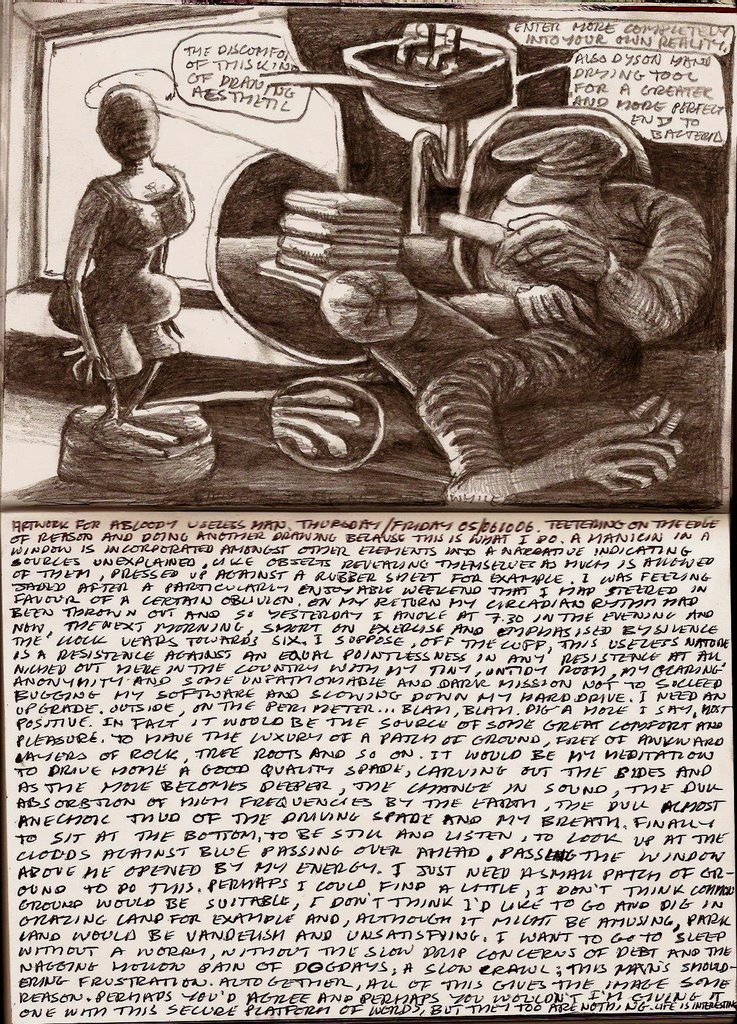 THE DISCOMFO
OF THIS KIND
OF DRAWING
AESTHETIC
ENTER MORE COMPLETELY
INTO YOUR OWN REALITY.
ALSO DYSON HAND
DRYING TOOL
FOR A GREATER
AND MORE PERFECT
END TO
BACTERIA
ARTWORK FOR A BLOODY USELESS MAN. THURSDAY/FRIDAY 05/061006. TEETERING ON THE EDGE
OF REASON AND DOING ANOTHER DRAWING BECAUSE THIS IS WHAT I DO. A MANICIN IN A
WINDOW IS INCORPORATED AMONGST OTHER ELEMENTS INTO A NARRATIVE INDICATING
SOURCES UNEXPLAINED, LIKE OBJECTS REVEALING THEMSELVES AS MUCH IS ALLOWED
OF THEM, PRESSED UP AGAINST A RUBBER SHEET FOR EXAMPLE. I WAS FEELING
JADED AFTER A PARTICULARLY ENJOYABLE WEEKEND THAT I HAD STEERED IN
FAVOUR OF A CERTAIN OBLIVION. ON MY RETURN MY CIRCADIAN RYTHM HAD
BEEN THROWN OUT AND SO YESTERDAY I AWOKE AT 7.30 IN THE EVENING AND
NOW, THE NEXT MORNING, SHORT ON EXERCISE AND EMPHASISED BY SILENCE
THE CLOCK VEARS TOWARDS SIX. I SUPPOSE, OFF THE CUFF, THIS USELESS NATURE
IS A RESISTENCE AGAINST AN EQUAL POINTLESSNESS IN ANY RESISTENCE AT ALL
NICHED OUT HERE IN THE COUNTRY WITH MY TINY, UNTIDY ROOM, MY GLARING
ANONYMITY AND SOME UNFATHOMABLE AND DARK MISSION NOT TO SUCCEED
BUGGING MY SOFTWARE AND SLOWING DOWN MY HARD DRIVE. I NEED AN
UPGRADE. OUTSIDE, ON THE PERIMETER... BLAH, BLAH. DIG A HOLE I SAY, MOST
POSITIVE. IN FACT IT WOULD BE THE SOURCE OF SOME GREAT COMFORT AND
PLEASURE. TO HAVE THE LUXURY OF A PATCH OF GROUND, FREE OF AWKWARD
LAYERS OF ROCK, TREE ROOTS AND SO ON. IT WOULD BE MY MEDITATION
TO DRIVE HOME A GOOD QUALITY SPADE, CARVING OUT THE SIDES AND
AS THE HOLE BECOMES DEEPER, THE CHANGE IN SOUND, THE DULL
ABSORBTION OF HIGH FREQUENCIES BY THE EARTH, THE DULL ALMOST
ANECHOIC THUD OF THE DRIVING SPADE AND MY BREATH. FINALLY
TO SIT AT THE BOTTOM, TO BE STILL AND LISTEN, TO LOOK UP AT THE
CLOUDS AGAINST BLUE PASSING OVER AHEAD, PASSING THE WINDOW
ABOVE ME OPENED BY MY ENERGY. I JUST NEED A SMALL PATCH OF GR-
OUND TO DO THIS. PERHAPS I COULD FIND A LITTLE, I DON'T THINK COMMON
GROUND WOULD BE SUITABLE, I DON'T THINK I'D LIKE TO GO AND DIG IN
GRAZING LAND FOR EXAMPLE AND, ALTHOUGH IT MIGHT BE AMUSING, PARK
LAND WOULD BE VANDELISH AND UNSATISFYING. I WANT TO GO TO SLEEP
WITHOUT A WORRY, WITHOUT THE SLOW DRIP CONCERNS OF DEBT AND THE
NAGGING HOLLOW PAIN OF DOGDAYS, A SLOW CRAWL; THIS MAN'S SMOUL-
ERING FRUSTRATION. ALTOGETHER, ALL OF THIS GIVES THE IMAGE SOME
REASON. PERHAPS YOU'D AGREE AND PERHAPS YOU WOULDN'T. I'M GIVING IT
ONE WITH THIS SECURE PLATFORM OF WORDS, BUT THEY TOO ARE NOTHING. LIFE IS INTERESTING